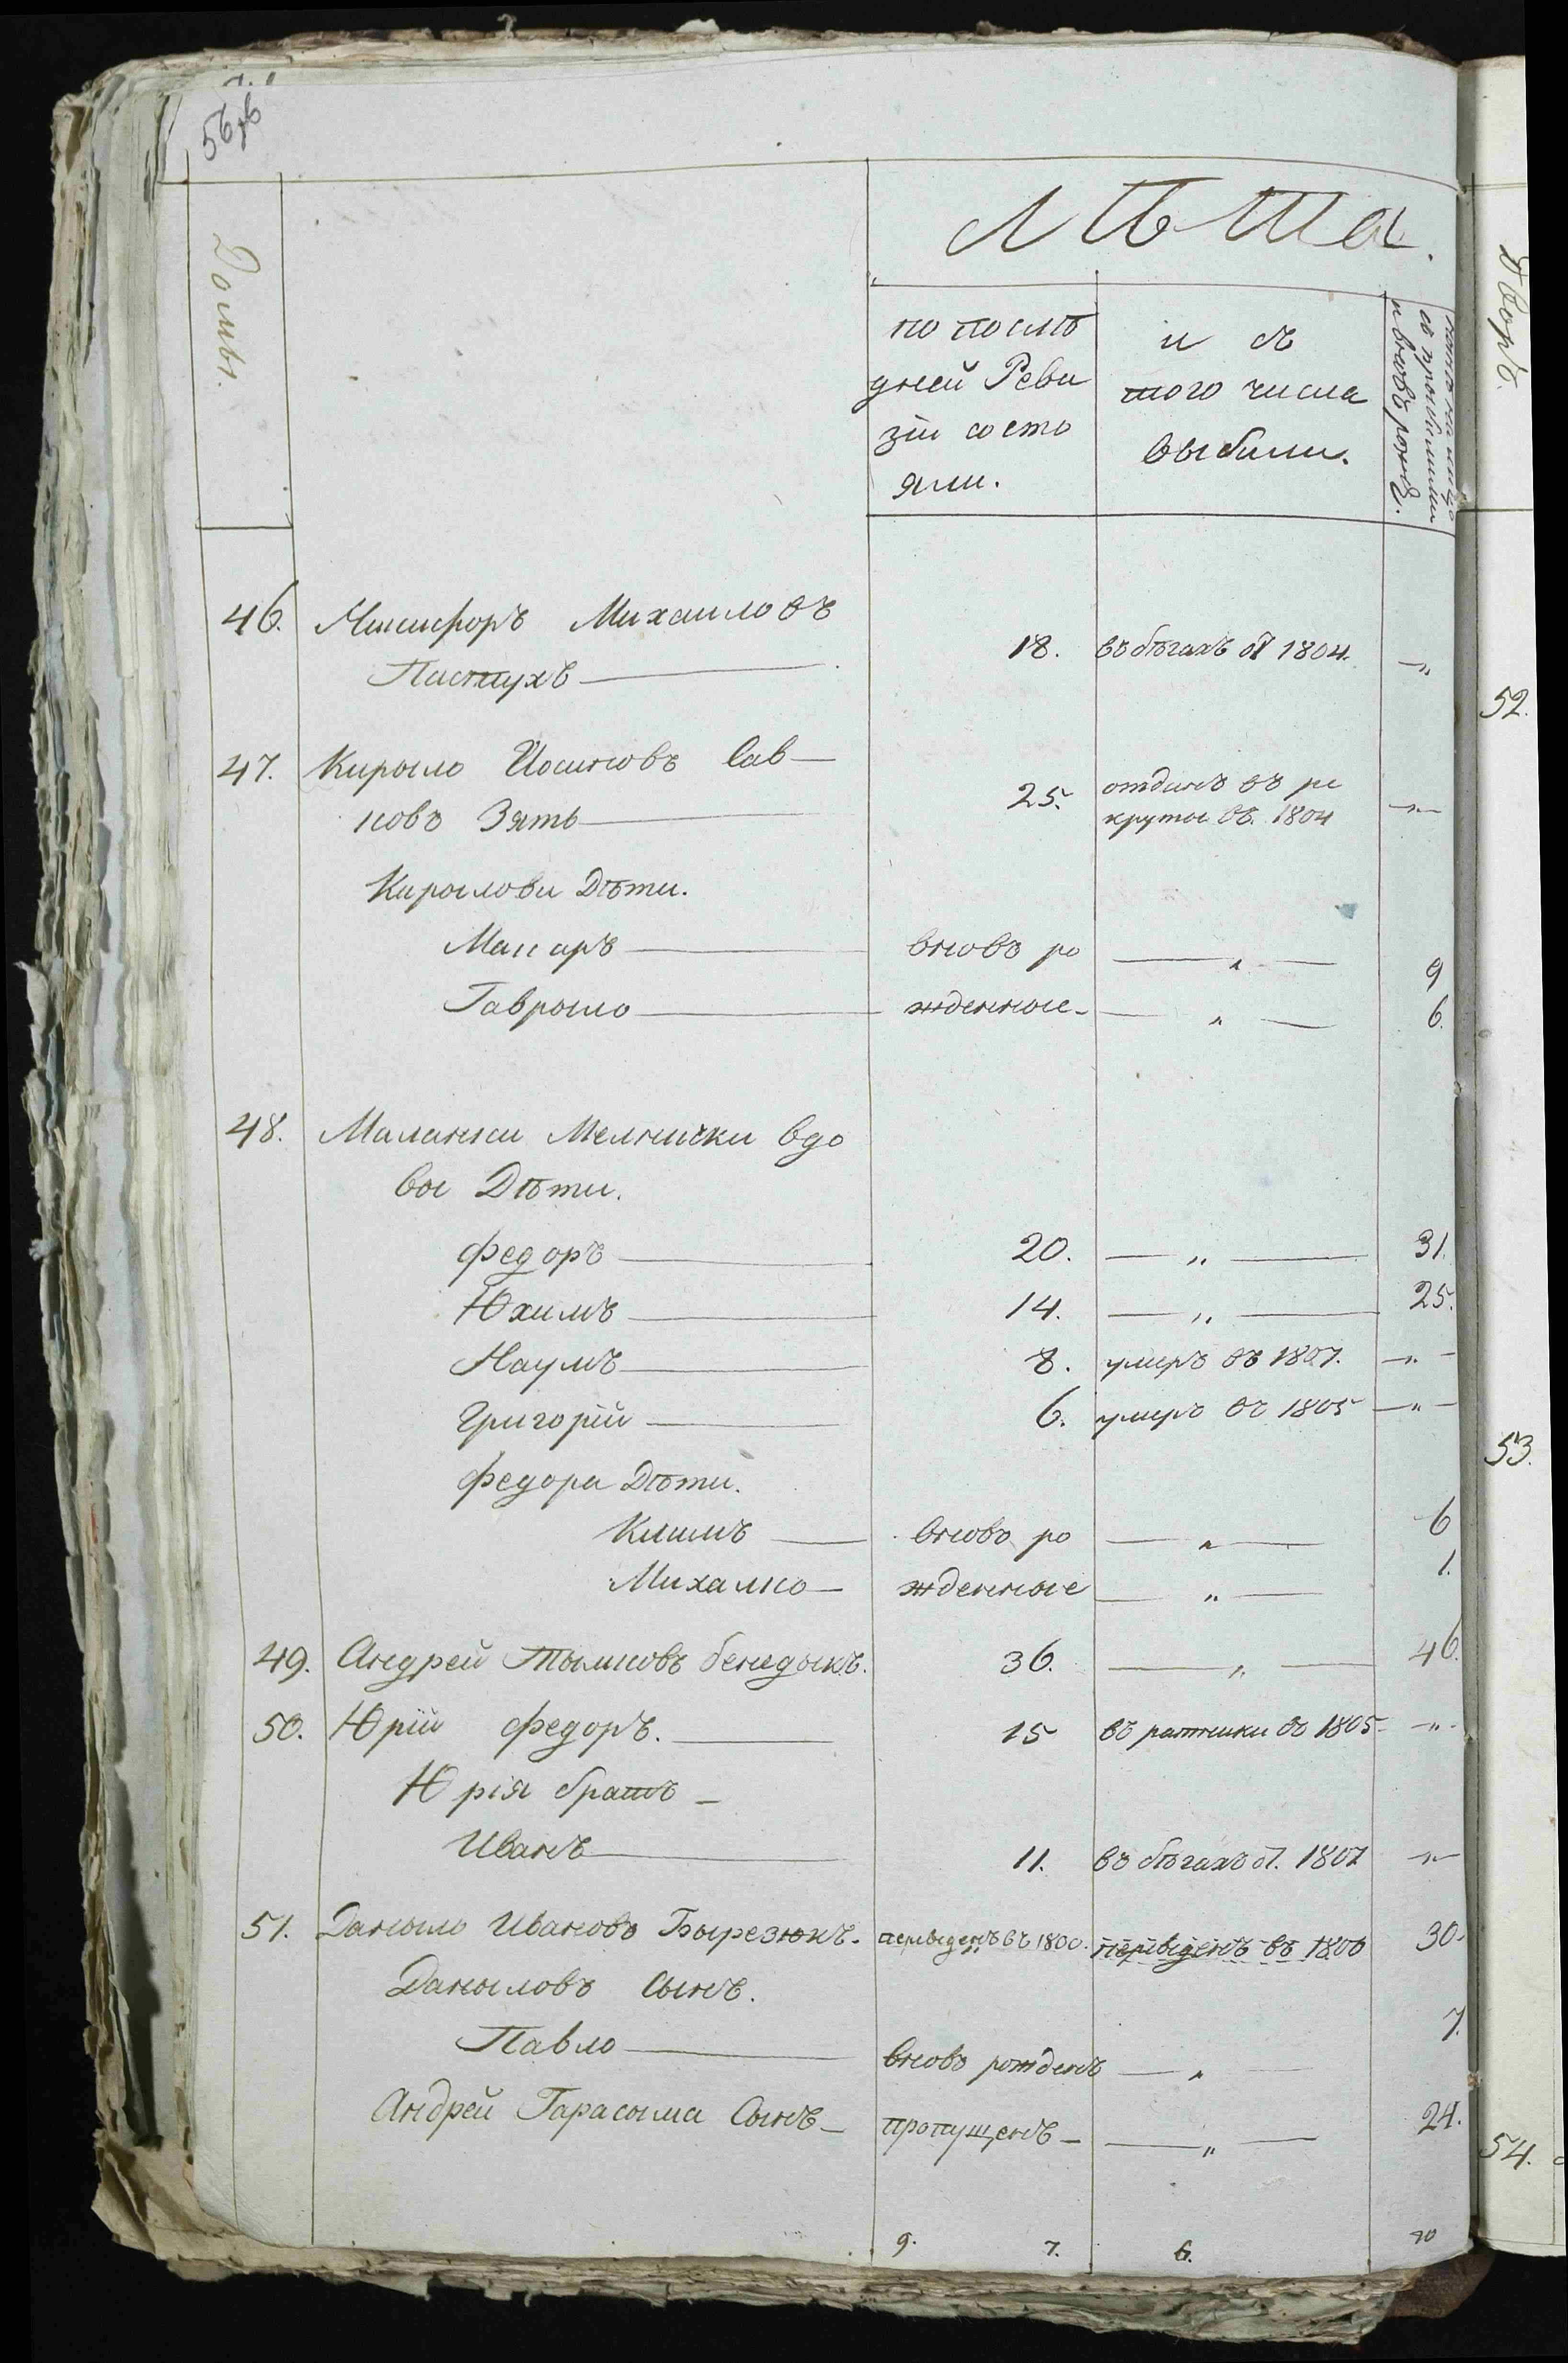 Домы.
Лѣта.
по послѣ
дней Реви
зіи состо
яли.
и съ
того числа
выбыли.
и вновь рожд.
46. Никифоръ Михаиловъ
Пастухъ — 18. въ бѣгахъ от 1804. — „
47. Кирыло Йосиповъ Сав—
ковъ Зять — 25. отданъ въ ре
круты въ. 1804 — „ —
Кирылови Дѣти.
Макаръ — вновь ро — „ — 9
Гаврыло — жденные — — „ — 6.
48. Маланки Мелнички вдо
вы Дѣти.
Федоръ — 20. — „ — 31.
Юхимъ — 14. — „ — 25.
Наумъ — 8. умеръ въ 1807. — „ —
Григорій — 6. умеръ въ 1805 — „ —
Федора Дѣти.
Климъ — вновь ро — „ — 6
Михалко — жденные — „ — 1.
49. Андрей Тымковъ бенедыкъ. 36. — „ — 46.
50. Юрій Федоръ. — 15 въ ратники въ 1805 — „ —
Юрія братъ —
Иванъ — 11. въ бѣгахъ от. 1807 — „ —
51. Даныло Ивановъ Бырезюкъ. переведенъ въ 1800. переведенъ въ 1800 30.
Даныловъ Сынъ.
Павло — вновь рожденъ — „ — 7.
Андрей Гарасыма Сынъ — пропущенъ — — „ — 24.
9. 7. 6. 10
Дворъ.
52.
53.
54.